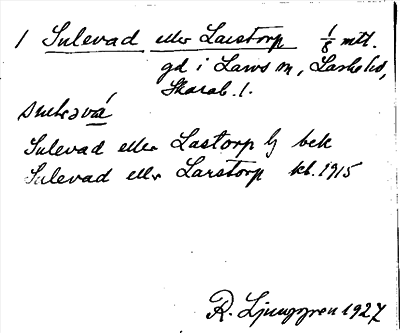 1 Sulevad eller Larstorp 1/8 mtl.
gd i Lavs sn, Laske hd,
Skarab. l.
Sulevad eller Lastorp Lj bek
Sulevad eller Larstorp kb. 1915
R. Ljunggren 1927